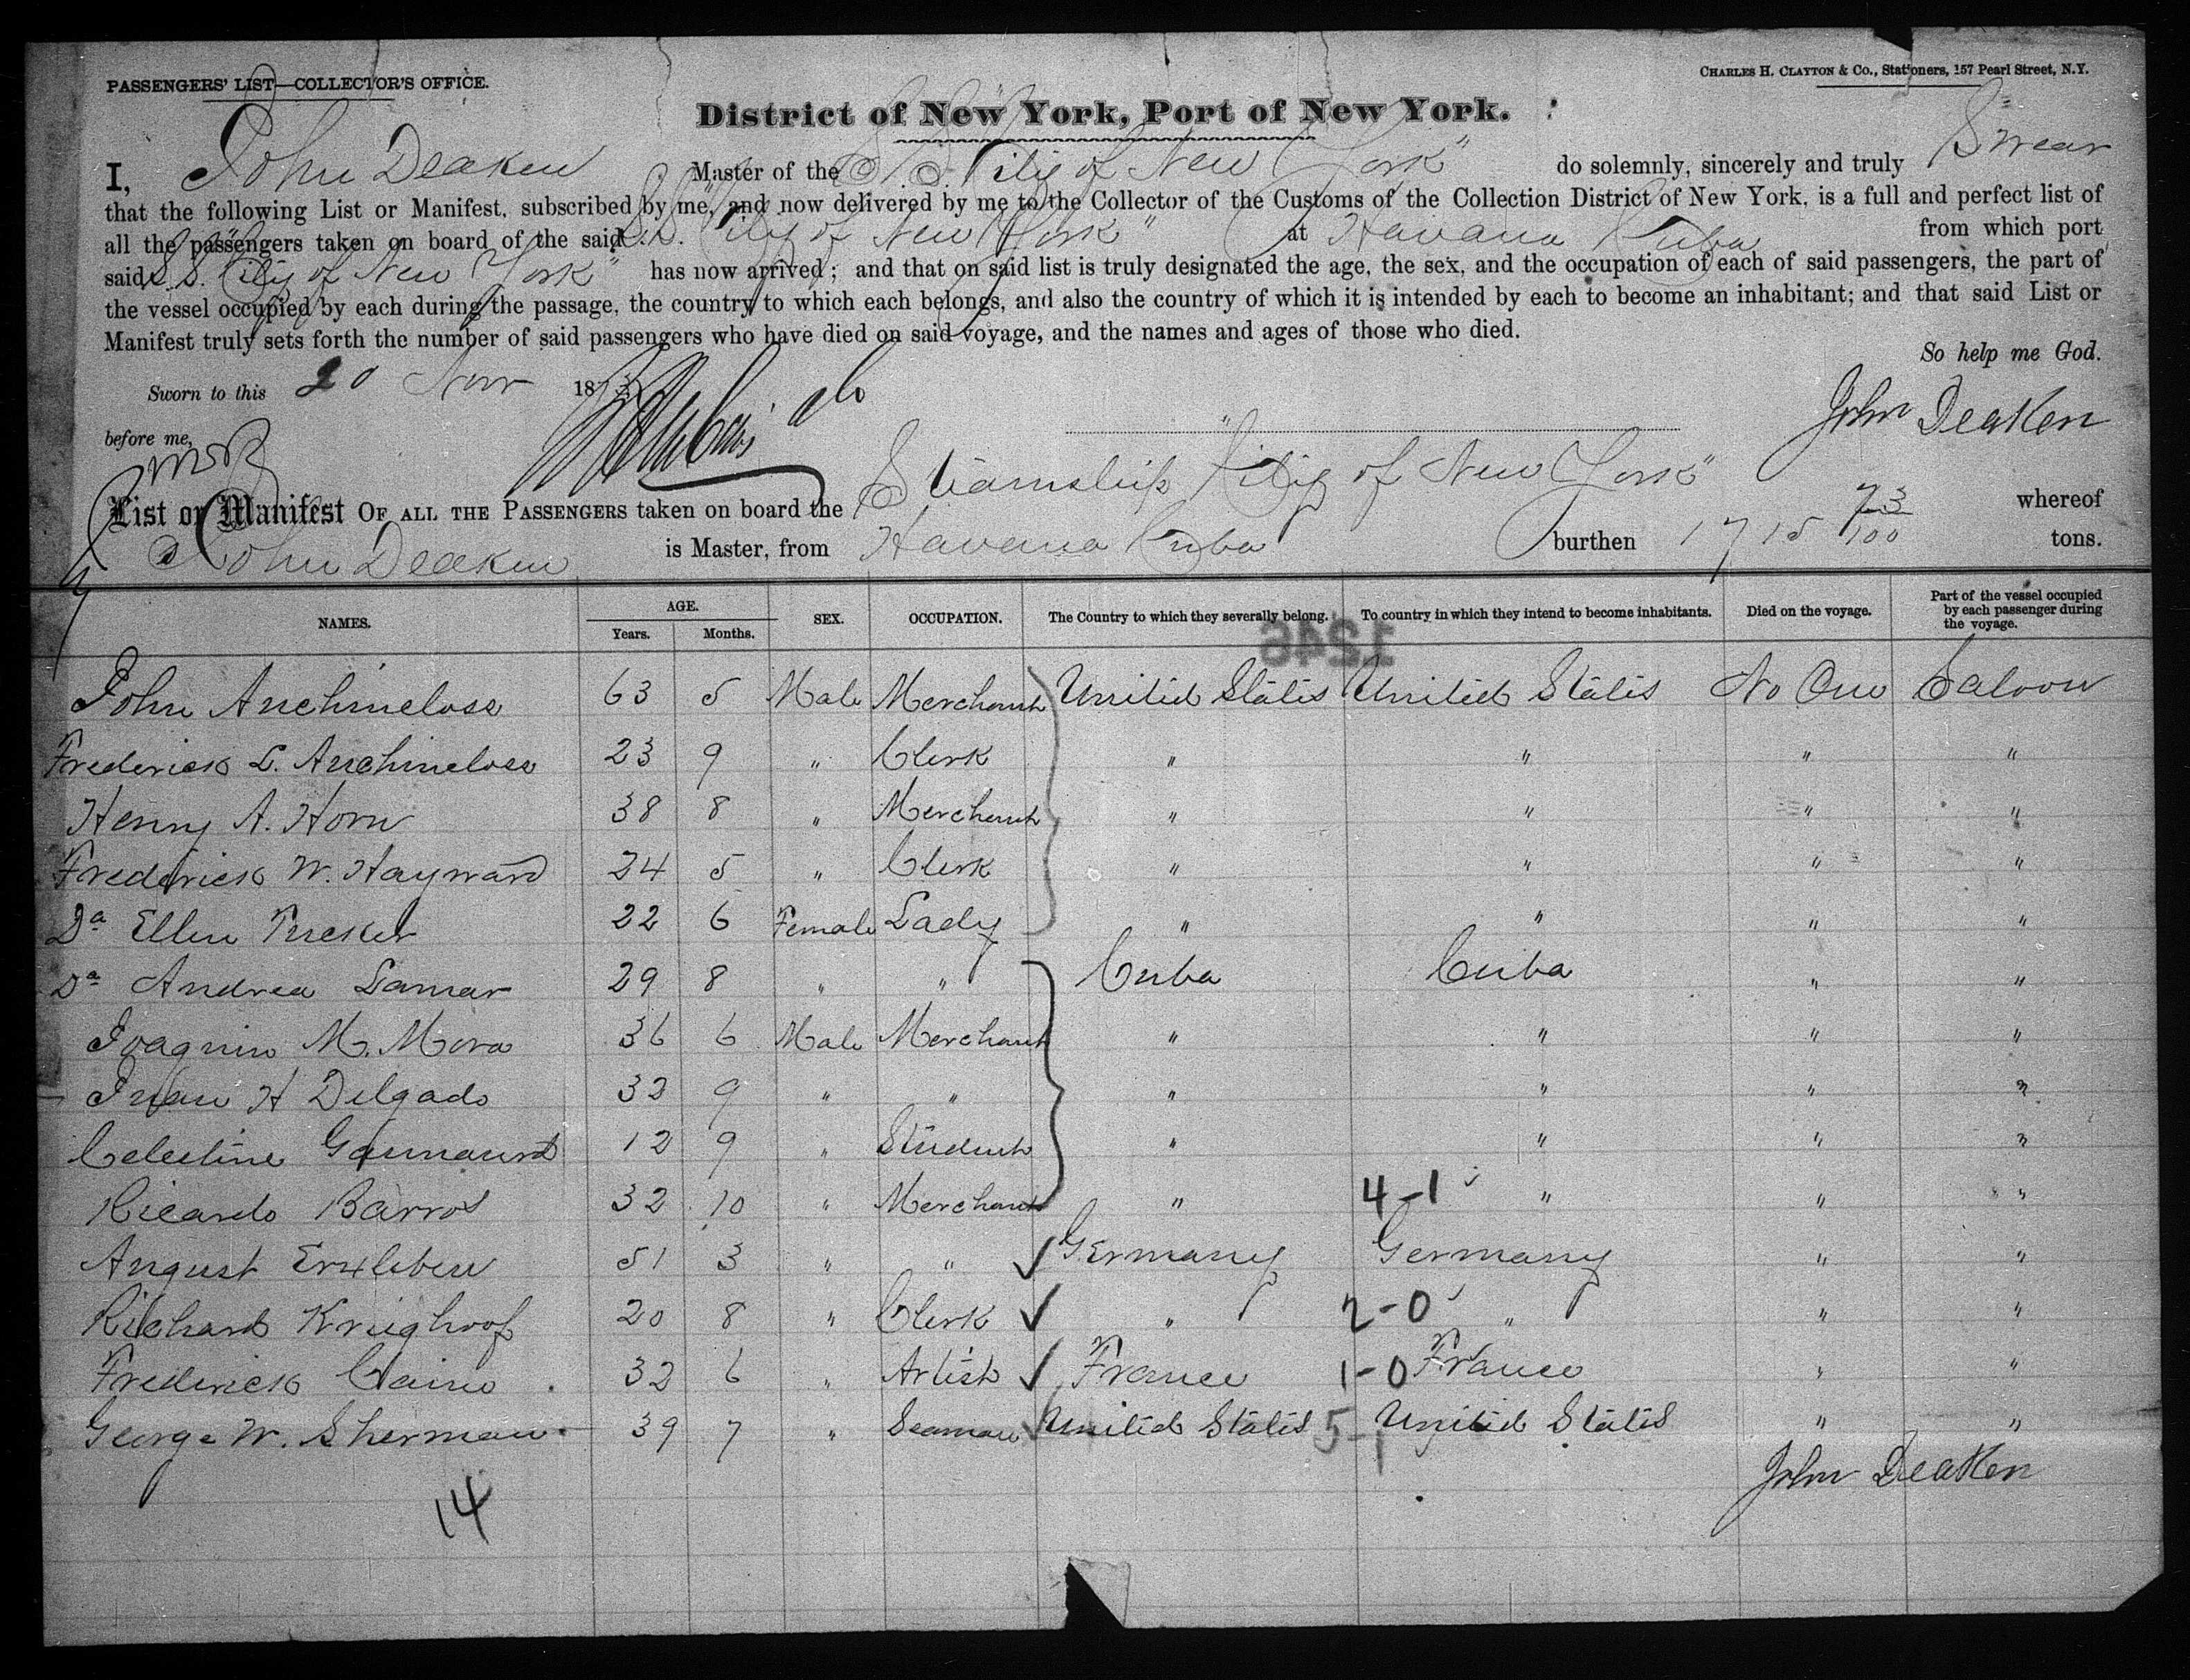 PASSENGERS' LIST—COLLECTOR'S OFFICE.
CHARLES H. CLAYTON & CO., Stationers, 157 Pearl Street, N.Y.
District of New York, Port of New York.
I, John Deaken Master of the S.S. "City of New York" do solemnly, sincerely and truly Swear
that the following List or Manifest, subscribed by me, and now delivered by me to the Collector of the Customs of the Collection District of New York, is a full and perfect list of
all the passengers taken on board of the said S.S. "City of New York" at Havana Cuba from which port
said S.S. "City of New York" has now arrived; and that on said list is truly designated the age, the sex, and the occupation of each of said passengers, the part of
the vessel occupied by each during the passage, the country to which each belongs, and also the country of which it is intended by each to become an inhabitant; and that said List or
Manifest truly sets forth the number of said passengers who have died on said voyage, and the names and ages of those who died.
So help me God.
Sworn to this 20 Nov 1875
John Deaken
before me,
List or Manifest OF ALL THE PASSENGERS taken on board the Steamship "City of New York" whereof
John Deaken is Master, from Havana Cuba burthen 1715 73/100 tons.
NAMES. AGE. Years. Months. SEX. OCCUPATION. The Country to which they severally belong. To country in which they intend to become inhabitants. Died on the voyage. Part of the vessel occupied by each passenger during the voyage.
1246
John Auchincloss 63 5 Male Merchant United States United States No One Saloon
Frederick L. Auchincloss 23 9 " Clerk " " " "
Henry A. Horn 38 8 " Merchant " " " "
Frederick W. Hayward 24 5 " Clerk " " " "
Da Ellen Tucker 22 6 Female Lady " " " "
Da Andrea Lamar 29 8 " " Cuba Cuba " "
Joaquin M. Mora 36 6 Male Merchant " " " "
Juan H Delgado 32 9 " " " " " "
Celestine 12 9 " Student " " " "
Ricardo Barros 32 10 " Merchant " 4-1 " " "
August Erxleben 51 3 " " Germany Germany " "
Richard 20 8 " Clerk " 2-0 " " "
Frederick 32 6 " Artist France 1-0 France " "
George W. Sherman 39 7 " Seaman United States 5-1 United States " "
John Deaken
14